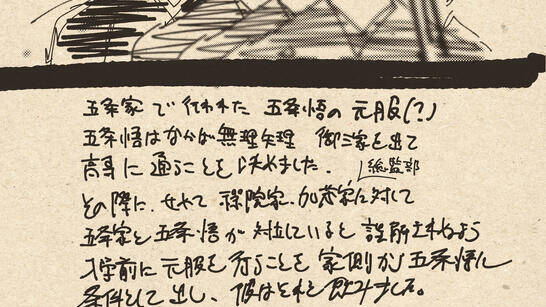 五条家で行われた 五条悟の元服(?)
五条悟はなかば無理矢理 御三家を出て
高専に通うことを決めました。
総監部
その際に、せめて 禪院家、加茂家に対して
五条家と五条悟が対立していると 誤解されぬよう
入学前に元服を行うことを 家側が五条悟に
条件として出し、彼はそれを飲みました。